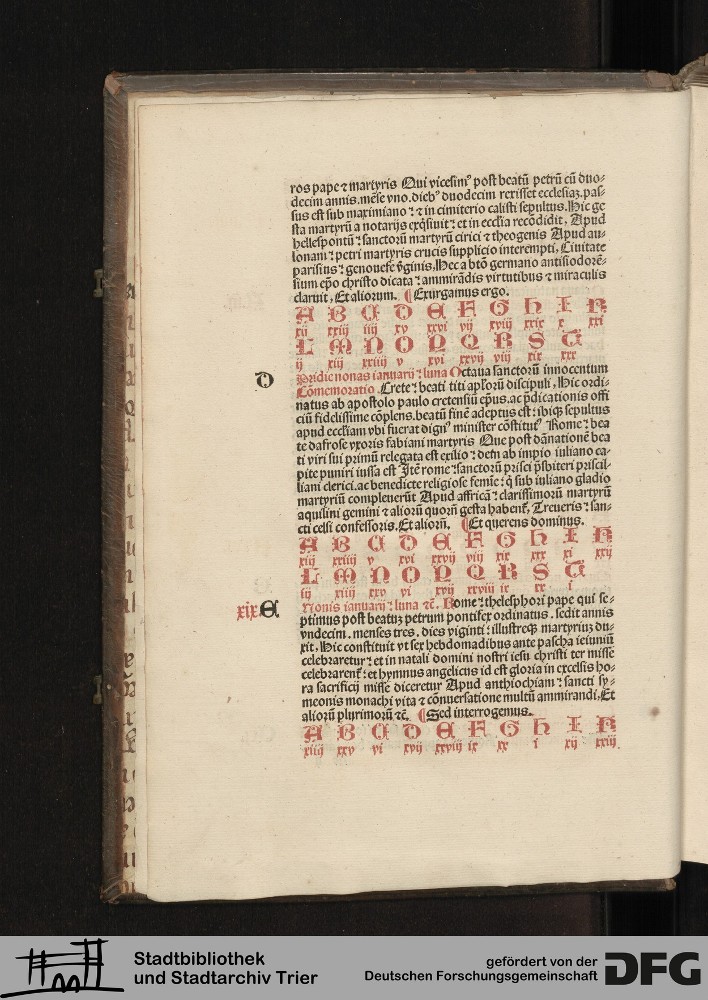 ros pape ⁊ martyris Qui vicesimꝰ post beatū petrū cū duo-
decim annis.mēse vno.diebꝰ duodecim rexisset ecclesiaꝫ.pas-
sus est sub maximiano : ⁊ in cimiterio calisti sepultus.Hic ge
sta martyrū a notarijs exq̄siuit : et in ecclīa recōdidit, Apud
hellespontū : sanctorū martyrū cirici ⁊ theogenis Apud au-
lonam : petri martyris crucis supplicio interempti, Ciuitate
parisius : genouefe v̄ginis, Hec a btō germano antisiodorē-
sium ep̄o christo dicata : ammirādis virtutibus ⁊ miraculis
claruit, Et aliorum. ¶ Exurgamus ergo.
A B C D E F G H I K
xij xxiij iiij xv xxvi vij xviij xxix x xxi
L M N O P Q R S T
ij xiij xxiiij v xvi xxvij viij xix xxx
D Pridie nonas ianuarij : luna Octaua sanctorū innocentum
Cōmemoratio .Crete : beati titi apl'orū discipuli, Hic ordi-
natus ab apostolo paulo cretensiū ep̄us.ac p̄dicationis offi
ciū fidelissime cōplens.beatū finē adeptus est : ibiqꝫ sepultus
apud eccl'iam vbi fuerat dignꝰ minister cōstitutꝰ Rome : bea
te dafrose vxoris fabiani martyris Que post dānationē bea
ti viri sui primū relegata est exilio : deīn ab impio iuliano ca-
pite puniri iussa est Itē rome : sanctorū prisci p̄sbiteri priscil-
liani clerici.ac benedicte religiose femīe : q̄ sub iuliano gladio
martyriū compleuerūt Apud affricā : clarissimorū martyrū
aquilini gemini ⁊ aliorū quorū gesta habent᷑, Treueris : san-
cti celsi confessoris.Et aliorū, ¶ Et querens dominus.
A B C D E F G H I K
xiij xxiiij v xvi xxvij viij xix xxx xi xxij
L M N O P Q R S T
iij xiiij xxv vi xvij xxviij ix xx i
xix E Nonis ianuarij : luna ⁊c̄. Rome : thelesphori pape qui se-
ptimus post beatuꝫ petrum pontifex ordinatus . sedit annis
vndecim . menses tres . dies viginti : illustreqꝫ martyriuꝫ du-
xit, Hic constituit vt sex hebdomadibus ante pascha ieiuniū
celebraretur : et in natali domini nostri iesu christi ter misse
celebrarent᷑ : et hymnus angelicus id est gloria in excelsis ho-
ra sacrificij misse diceretur Apud anthiochiam : sancti sy-
meonis monachi vita ⁊ cōnuersatione multū ammirandi, Et
aliorū plurimorū ⁊c̄. ¶ Sed interrogemus.
A B C D E F G H I K
xiiij xxv vi xvij xxviij ix xx i xij xxiij
Stadtbibliothek
und Stadtarchiv Trier
gefördert von der
Deutschen Forschungsgemeinschaft
DFG